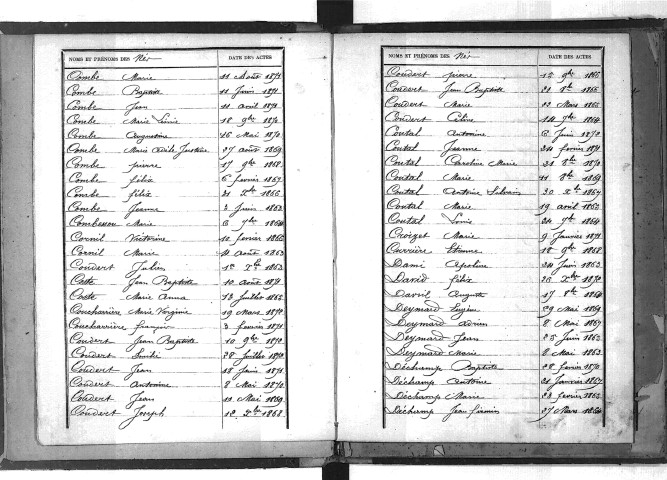 NOMS ET PRÉNOMS DES Nés DATE DES ACTES
Combe Marie 11 Aout 1871
Combe Baptiste 11 Juin 1871
Combe Jean 11 avril 1871
Combe Marie Louise 18 9bre 1870
Combe Augustine 16 Mai 1870
Combe Marie Adèle Justine 27 août 1869
Combe pierre 17 9bre 1868
Combe félix 6 fevrier 1867
Combe félix 21 Xbre 1866
Combe Jeanne 2 Juin 1863
Combesson Marie 6 9bre 1864
Cornil Victorine 12 fevrier 1866
Cornil Marie 4 août 1863
Coudert Julien 1er Xbre 1863
Coste Jean Baptiste 10 août 1871
Coste Marie Anna 13 Juillet 1865
Coucharrière Marie Virginie 19 Mars 1870
Coucharrière françois 3 fevrier 1871
Coudert Jean Baptiste 10 9bre 1870
Coudert Emile 28 Juillet 1870
Coudert Jean 18 Juin 1871
Coudert Antoine 8 Mai 1870
Coudert Jean 11 Mai 1869
Coudert Joseph 12 Xbre 1868
NOMS ET PRÉNOMS DES Nés DATE DES ACTES
Coudert pierre 12 9bre 1866
Coudert Jean Baptiste 21 8bre 1866
Coudert Marie 22 Mars 1865
Coudert Céline 14 9bre 1864
Coutal Antoine 6 Juin 1870
Coutal Jeanne 24 fevrier 1871
Coutal Caroline Marie 21 8bre 1870
Coutal Marie 11 8bre 1868
Coutal Antoine Sylvain 30 Xbre 1864
Coutal Marie 19 avril 1863
Coutal Louis 24 9bre 1864
Croizet Marie 9 Janvier 1871
Cuvière Etienne 18 9bre 1868
Dami Apoline 24 Juin 1863
David félix 26 Xbre 1870
David Auguste 17 8bre 1864
Deymard Eugène 29 Mai 1869
Deymard Adrien 8 Mai 1867
Deymard Jean 25 Juin 1863
Deymard Marie 2 Mai 1863
Déchamp Baptiste 28 fevrier 1870
Déchamp Antoine 21 Janvier 1867
Déchamp Marie 23 fevrier 1865
Déchamp Jean firmin 27 Mars 1864